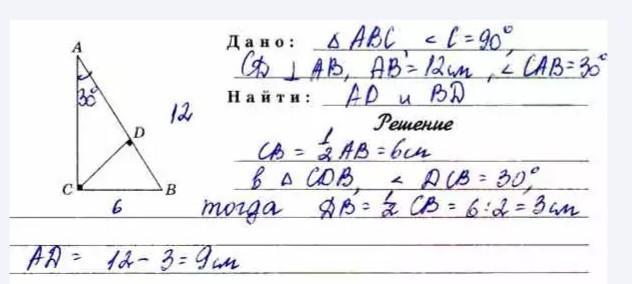 A
30°
12
D
C
B
6
Дано: △ ABC, < C = 90°,
CD ⊥ AB, AB = 12 см, < CAB = 30°
Найти: AD и BD
Решение
CB = 1/2 AB = 6 см
в △ CDB, < DCB = 30°,
тогда DB = 1/2 CB = 6 : 2 = 3 см
AD = 12 - 3 = 9 см